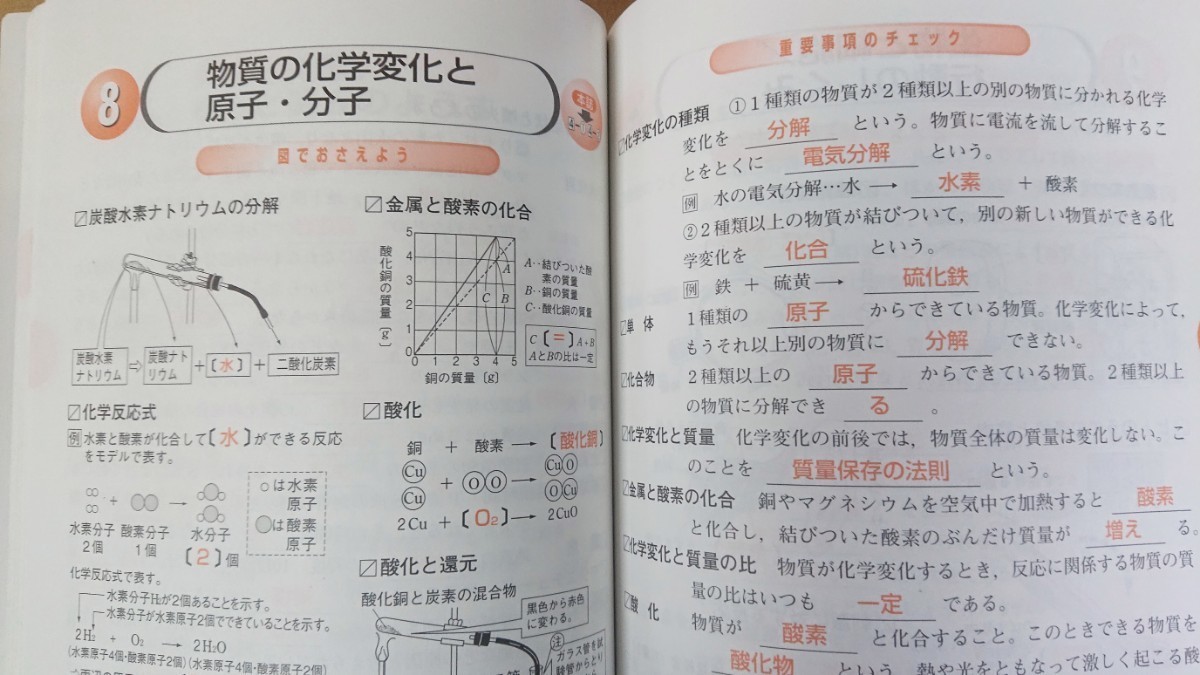 8
物質の化学変化と
原子・分子
本冊
図でおさえよう
炭酸水素ナトリウムの分解
炭酸水素
ナトリウム
⇨
炭酸ナト
リウム
+〔水〕+
二酸化炭素
金属と酸素の化合
酸化銅の質量〔g〕
5
4
3
2
1
0
0 1 2 3 4 5
銅の質量〔g〕
A
C B
A‥結びついた酸
素の質量
B‥銅の質量
C‥酸化銅の質量
C〔=〕A+B
AとBの比は一定
化学反応式
例 水素と酸素が化合して〔水〕ができる反応
をモデルで表す。
+ →
水素分子
2個
酸素分子
1個
水分子
〔2〕個
○は水素
原子
は酸素
原子
化学反応式で表す。
水素分子H₂が2個あることを示す。
水素分子が水素原子2個でできていることを示す。
2H₂ + O₂ → 2H₂O
(水素原子4個・酸素原子2個)(水素原子4個・酸素原子2個)
酸化
銅 + 酸素 →〔酸化銅〕
Cu
Cu
+ OO →
CuO
OCu
2Cu +〔O₂〕→ 2CuO
酸化と還元
酸化銅と炭素の混合物
黒色から赤色
に変わる。
注
ガラス管を試
験管からとり
重要事項のチェック
化学変化の種類 ①1種類の物質が2種類以上の別の物質に分かれる化学
変化を 分解 という。物質に電流を流して分解するこ
とをとくに 電気分解 という。
例 水の電気分解…水 → 水素 + 酸素
②2種類以上の物質が結びついて，別の新しい物質ができる化
学変化を 化合 という。
例 鉄 + 硫黄 → 硫化鉄
単体 1種類の 原子 からできている物質。化学変化によって，
もうそれ以上別の物質に 分解 できない。
化合物 2種類以上の 原子 からできている物質。2種類以上
の物質に分解でき る 。
化学変化と質量 化学変化の前後では，物質全体の質量は変化しない。こ
のことを 質量保存の法則 という。
金属と酸素の化合 銅やマグネシウムを空気中で加熱すると 酸素
と化合し，結びついた酸素のぶんだけ質量が 増え る。
化学変化と質量の比 物質が化学変化するとき，反応に関係する物質の質
量の比はいつも 一定 である。
酸化 物質が 酸素 と化合すること。このときできる物質を
酸化物 という。熱や光をともなって激しく起こる酸